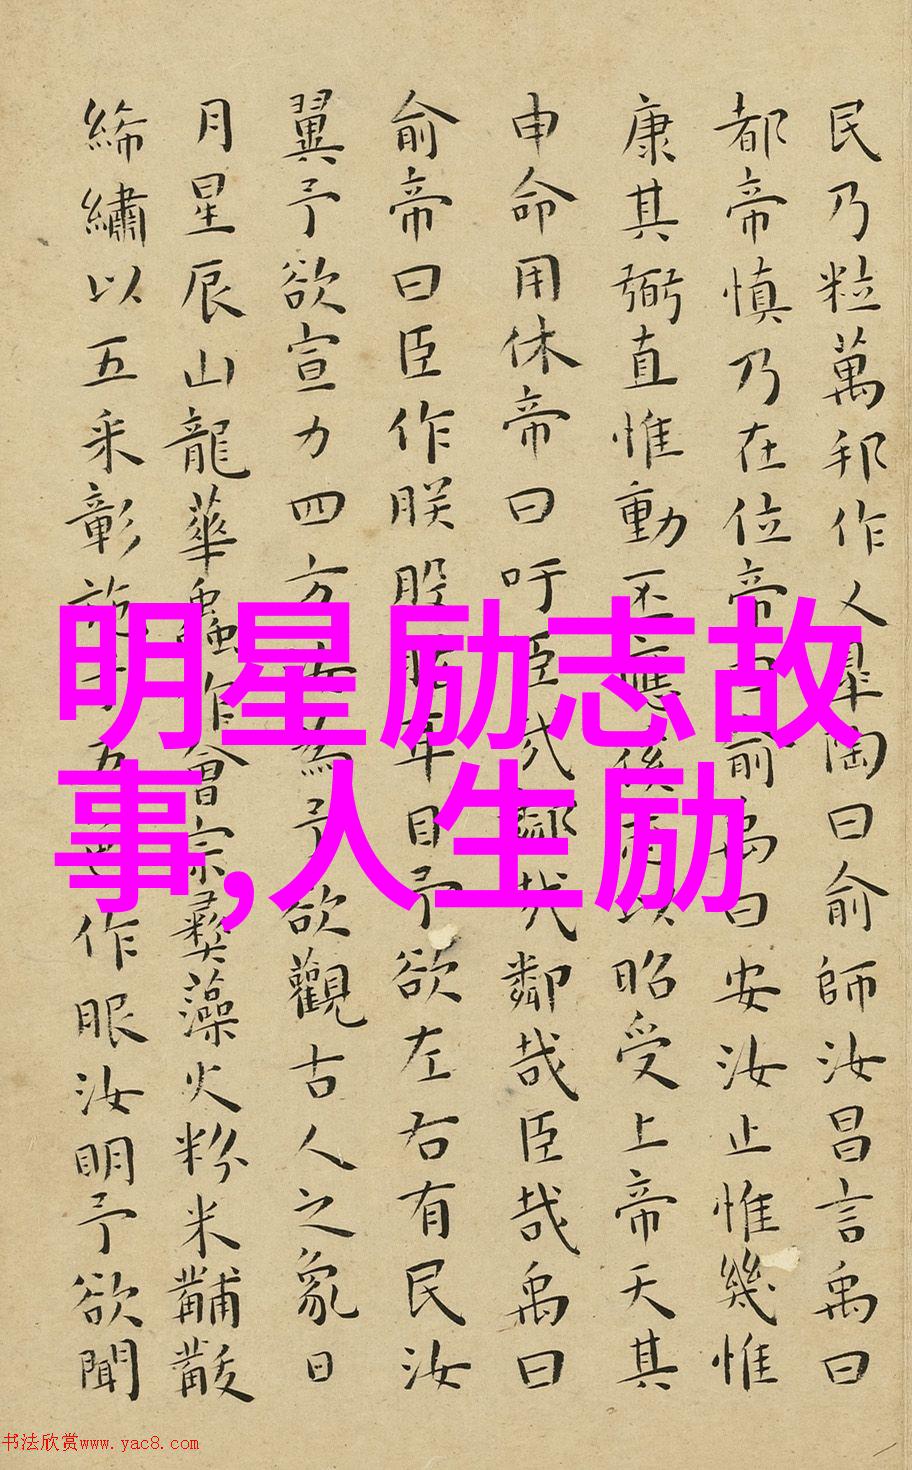 民乃粒萬邦作乂皐陶曰俞師汝昌言禹曰
都帝慎乃在位帝曰俞禹曰安汝止惟幾惟
康其弼直惟動丕應徯志以昭受上帝天其
申命用休帝曰吁臣哉鄰哉鄰哉臣哉禹曰
俞帝曰臣作朕股肱耳目予欲左右有民汝
翼予欲宣力四方汝為予欲觀古人之象日
月星辰山龍華蟲作會宗彝藻火粉米黼黻
絺繡以五采彰施于五色作服汝明予欲聞
明星励志故
事,人生励
书法欣赏www.yac8.com